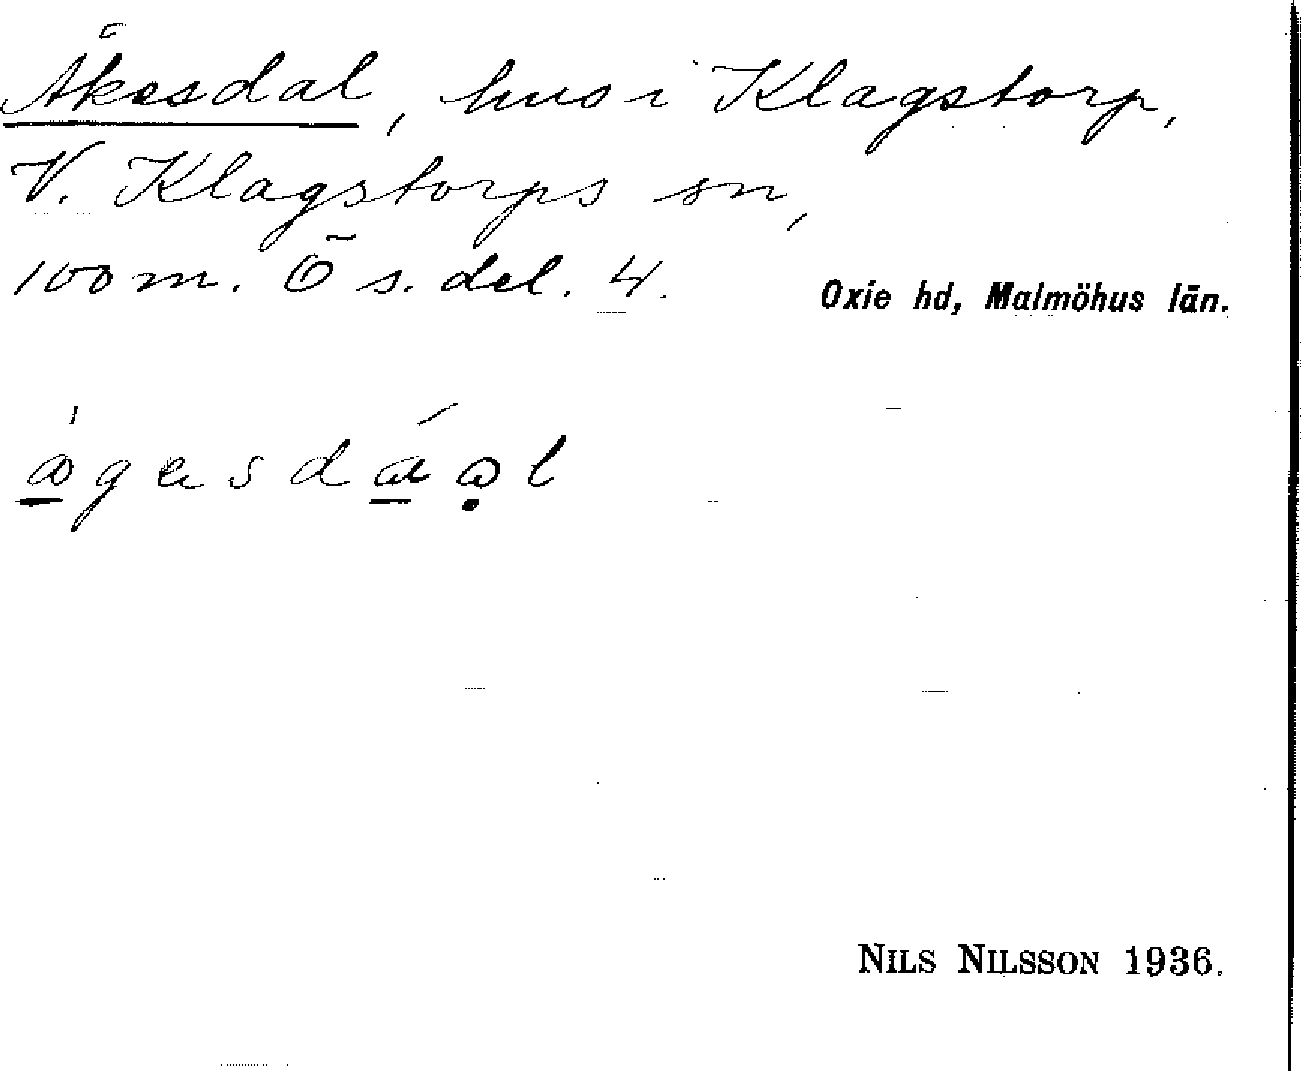 Åkesdal, hus i Klagstorp,
V. Klagstorps sn,
100 m. Ö s. del. 4. Oxie hd, Malmöhus län.
NILS NILSSON 1936.